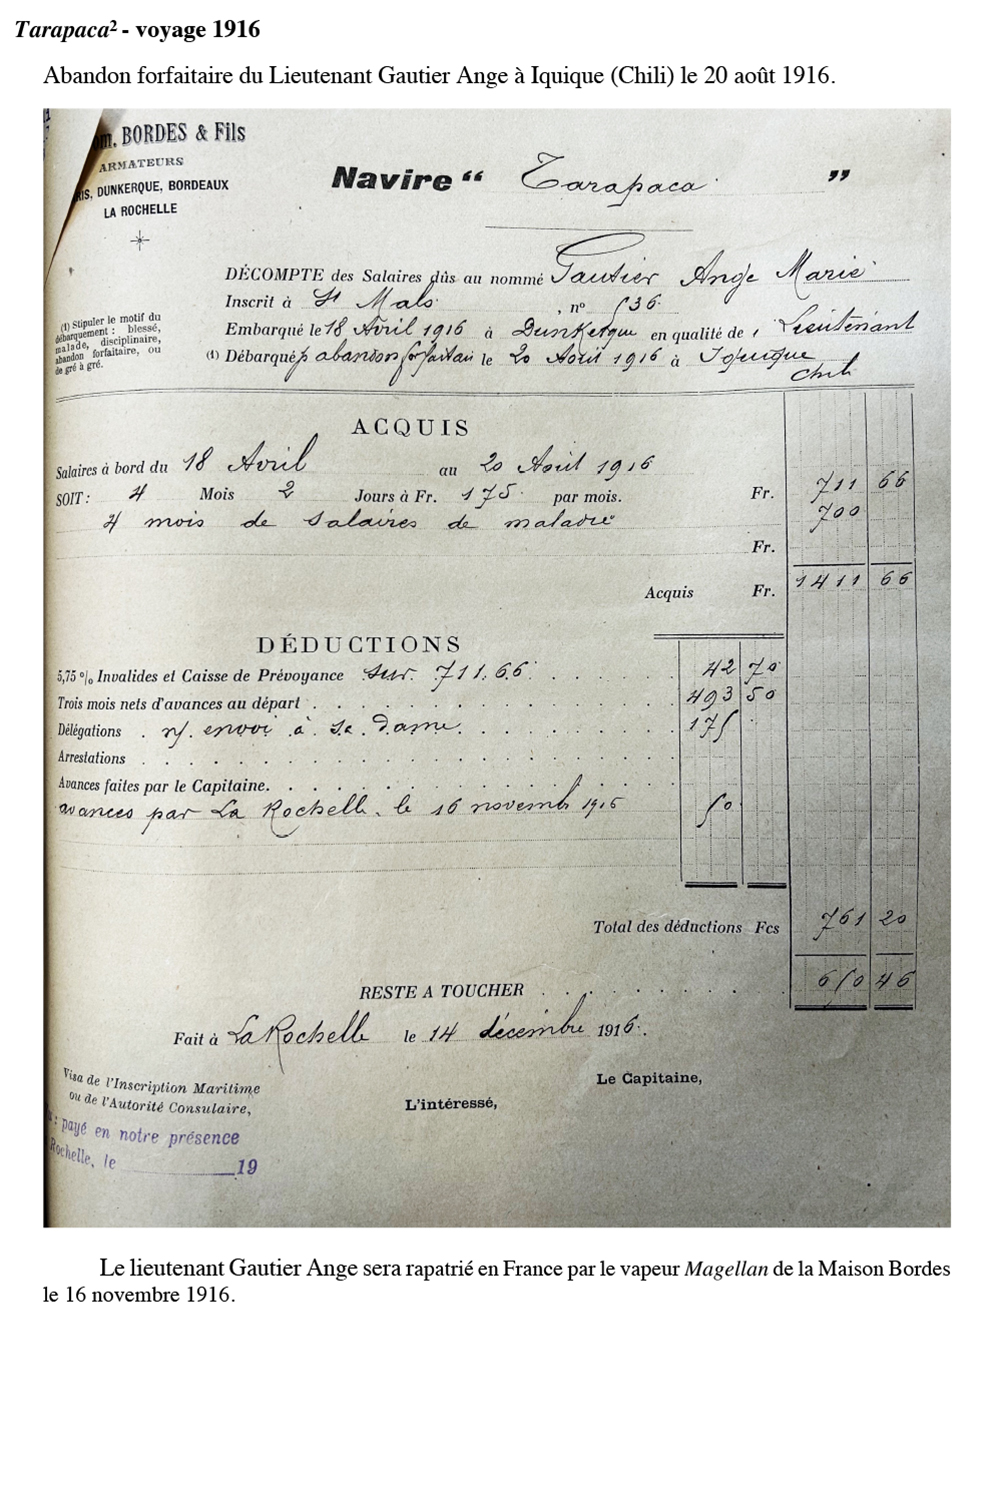 Tarapaca² - voyage 1916
Abandon forfaitaire du Lieutenant Gautier Ange à Iquique (Chili) le 20 août 1916.
BORDES & Fils
ARMATEURS
DUNKERQUE, BORDEAUX
LA ROCHELLE
Navire “ Tarapaca ”
DÉCOMPTE des Salaires dûs au nommé Gautier Ange Marie
Inscrit à St Malo , n° 536
Embarqué le 18 Avril 1916 à Dunkerque en qualité de Lieutenant
(1) Débarqué p abandon forfaitair le 20 Août 1916 à Iquique
Chili
(1) Stipuler le motif du
débarquement : blessé,
malade, disciplinaire,
abandon forfaitaire, ou
de gré à gré.
ACQUIS
Salaires à bord du 18 Avril au 20 Août 1916
SOIT : 4 Mois 2 Jours à Fr. 175 par mois. Fr. 711 66
4 mois de salaires de maladie 700
Fr.
Acquis Fr. 1411 66
DÉDUCTIONS
5,75 % Invalides et Caisse de Prévoyance sur 711.66 42 70
Trois mois nets d'avances au départ 493 50
Délégations n/ envoi à sa Dame 175
Arrestations
Avances faites par le Capitaine.
avances par La Rochelle le 16 novemb 1916 50
Total des déductions Fcs 761 20
RESTE A TOUCHER 650 46
Fait à La Rochelle le 14 décembre 1916.
Le Capitaine,
L'intéressé,
Visa de l'Inscription Maritime
ou de l'Autorité Consulaire,
: payé en notre présence
Rochelle, le 19
Le lieutenant Gautier Ange sera rapatrié en France par le vapeur Magellan de la Maison Bordes
le 16 novembre 1916.